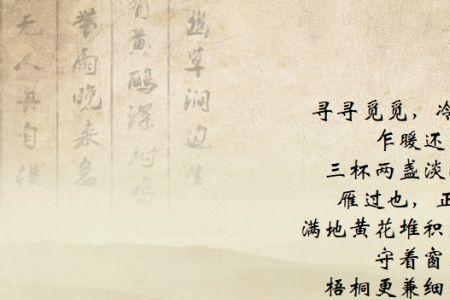 幽草涧边生
黄鹂深树鸣
雨晚来急
无人舟自横
寻寻觅觅，冷
乍暖还
三杯两盏淡
雁过也，正
满地黄花堆积
守着窗
梧桐更兼细